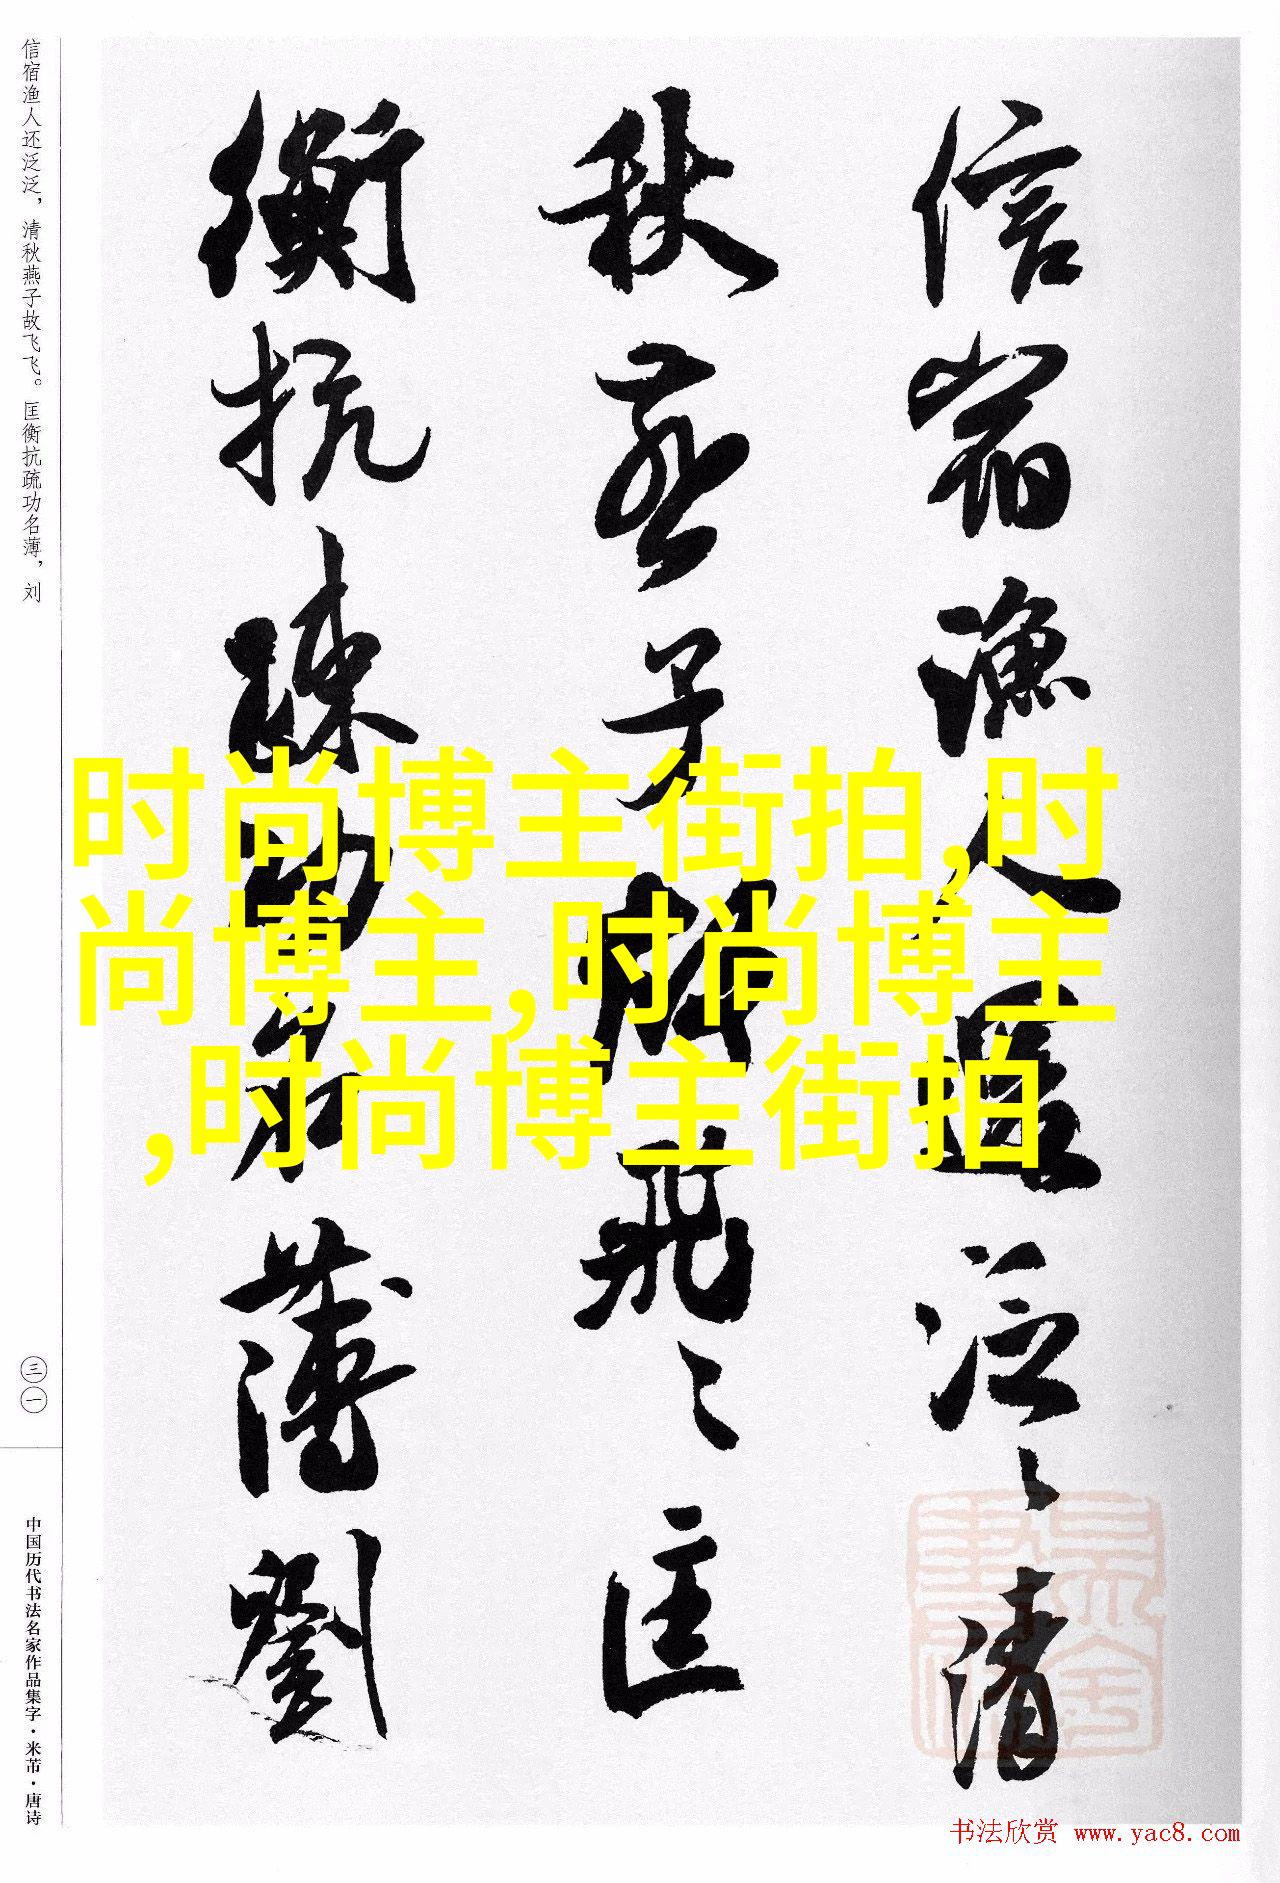 信宿渔人还泛泛，清秋燕子故飞飞。匡衡抗疏功名薄，刘
信宿漁人還泛〻清
秋燕子故飛〻匡
衡抗疏功名薄劉
时尚博主街拍,时
尚博主,时尚博主
,时尚博主街拍
三一
中国历代书法名家作品集字·米芾·唐诗
书法欣赏 www.yac8.com